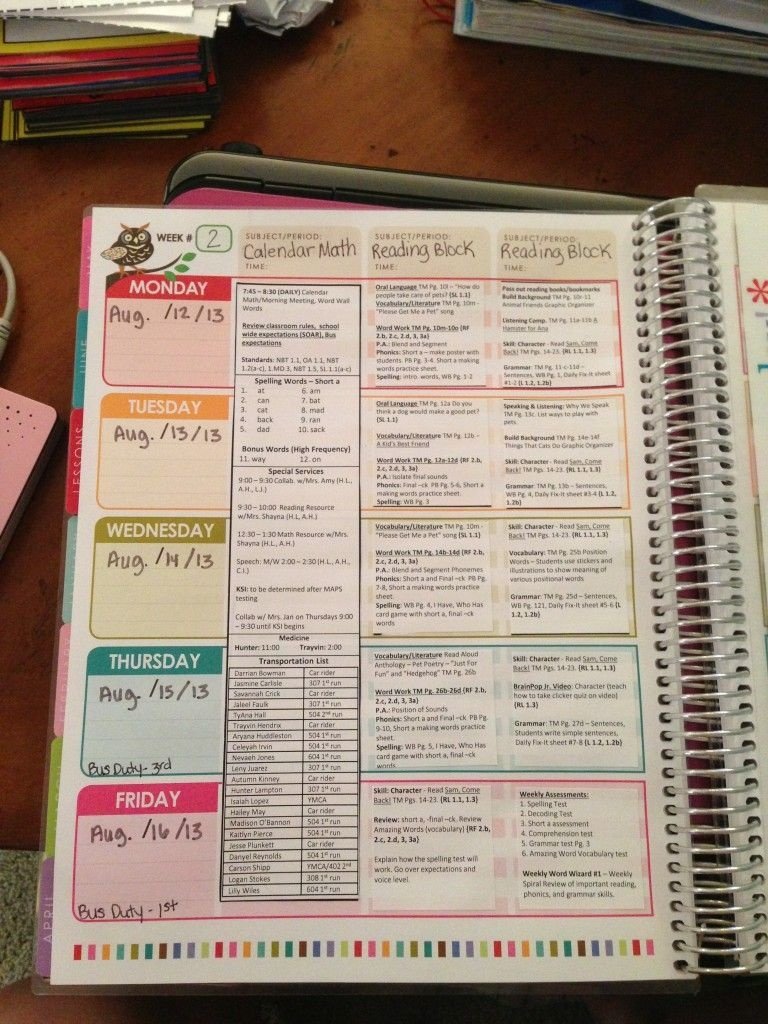 WEEK # 2
SUBJECT/PERIOD:
Calendar Math
TIME:
SUBJECT/PERIOD:
Reading Block
TIME:
SUBJECT/PERIOD:
Reading Block
TIME:
MONDAY
Aug. /12/13
7:45 – 8:30 (DAILY) Calendar
Math/Morning Meeting, Word Wall
Words
Review classroom rules, school
wide expectations (SOAR), Bus
expectations
Standards: NBT 1.1, OA 1.1, NBT
1.2(a-c), 1.MD 3, NBT 1.5, SL 1.1(a-c)
Spelling Words – Short a
1. at 6. am
2. can 7. bat
3. cat 8. mad
4. back 9. ran
5. dad 10. sack
Bonus Words (High Frequency)
11. way 12. on
Special Services
9:00 – 9:30 Collab. w/Mrs. Amy (H.L.,
A.H., L.J.)
9:30 – 10:00 Reading Resource
w/Mrs. Shayna (H.L, A.H.)
12:30 – 1:30 Math Resource w/Mrs.
Shayna (H.L, A.H.)
Speech: M/W 2:00 – 2:30 (H.L., A.H.,
C.I.)
KSI: to be determined after MAPS
testing
Collab w/ Mrs. Jan on Thursdays 9:00
– 9:30 until KSI begins
Medicine
Hunter: 11:00 Trayvin: 2:00
Transportation List
Darrian Bowman Car rider
Jasmine Carlisle 307 1st run
Savannah Crick Car rider
Jaleel Faulk 307 1st run
TyAna Hall 504 2nd run
Trayvin Hendrix Car rider
Aryana Huddleston 504 1st run
Celeyah Irvin 504 1st run
Nevaeh Jones 604 1st run
Leny Juarez 307 1st run
Autumn Kinney Car rider
Hunter Lampton 307 1st run
Isaiah Lopez YMCA
Hailey May Car rider
Madison O'Bannon 504 1st run
Kaitlyn Pierce 504 1st run
Jesse Plunkett Car rider
Danyel Reynolds 504 1st run
Carson Shipp YMCA/402 2nd
Logan Stokes 308 1st run
Lilly Wiles 604 1st run
Oral Language TM Pg. 10l – "How do
people take care of pets? {SL 1.1}
Vocabulary/Literature TM Pg. 10m -
"Please Get Me a Pet" song
Word Work TM Pg. 10m-10o {RF
2.b, 2.c, 2.d, 3, 3a}
P.A.: Blend and Segment
Phonics: Short a – make poster with
students. PB Pg. 3-4. Short a making
words practice sheet.
Spelling: intro. words, WB Pg. 1-2
Pass out reading books/bookmarks
Build Background TM Pg. 10r-11
Animal Friends Graphic Organizer
Listening Comp. TM Pg. 11a-11b A
Hamster for Ana
Skill: Character - Read Sam, Come
Back! TM Pgs. 14-23. {RL 1.1, 1.3}
Grammar: TM Pg. 11-c-11d –
Sentences, WB Pg. 1, Daily Fix-It sheet
#1-2 {L 1.2, 1.2b}
TUESDAY
Aug. /13/13
Oral Language TM Pg. 12a Do you
think a dog would make a good pet?
{SL 1.1}
Vocabulary/Literature TM Pg. 12b –
A Kid's Best Friend
Word Work TM Pg. 12a-12d {RF 2.b,
2.c, 2.d, 3, 3a}
P.A.: Isolate final sounds
Phonics: Final –ck PB Pg. 5-6, Short a
making words practice sheet.
Spelling: WB Pg. 3
Speaking & Listening: Why We Speak
TM Pg. 13c. List ways to play with
pets.
Build Background TM Pg. 14e-14f
Things That Cats Do Graphic Organizer
Skill: Character - Read Sam, Come
Back! TM Pgs. 14-23. {RL 1.1, 1.3}
Grammar: TM Pg. 13b – Sentences,
WB Pg. 4, Daily Fix-It sheet #3-4 {L 1.2,
1.2b}
WEDNESDAY
Aug. /14/13
Vocabulary/Literature TM Pg. 10m -
"Please Get Me a Pet" song {SL 1.1}
Word Work TM Pg. 14b-14d {RF 2.b,
2.c, 2.d, 3, 3a}
P.A.: Blend and Segment Phonemes
Phonics: Short a and Final –ck PB Pg.
7-8, Short a making words practice
sheet.
Spelling: WB Pg. 4, I Have, Who Has
card game with short a, final –ck
words
Skill: Character - Read Sam, Come
Back! TM Pgs. 14-23. {RL 1.1, 1.3}
Vocabulary: TM Pg. 25b Position
Words – Students use stickers and
illustrations to show meaning of
various positional words
Grammar: TM Pg. 25d – Sentences,
WB Pg. 121, Daily Fix-It sheet #5-6 {L
1.2, 1.2b}
THURSDAY
Aug. /15/13
Bus Duty - 3rd
Vocabulary/Literature Read Aloud
Anthology – Pet Poetry – "Just For
Fun" and "Hedgehog" TM Pg. 26b
Word Work TM Pg. 26b-26d {RF 2.b,
2.c, 2.d, 3, 3a}
P.A.: Position of Sounds
Phonics: Short a and Final –ck PB Pg.
9-10, Short a making words practice
sheet.
Spelling: WB Pg. 5, I Have, Who Has
card game with short a, final –ck
words
Skill: Character - Read Sam, Come
Back! TM Pgs. 14-23. {RL 1.1, 1.3}
BrainPop Jr. Video: Character (teach
how to take clicker quiz on video)
{RL 1.3}
Grammar: TM Pg. 27d – Sentences,
Students write simple sentences,
Daily Fix-It sheet #7-8 {L 1.2, 1.2b}
FRIDAY
Aug. /16/13
Bus Duty - 1st
Skill: Character - Read Sam, Come
Back! TM Pgs. 14-23. {RL 1.1, 1.3}
Review: short a, -final –ck. Review
Amazing Words (vocabulary) {RF 2.b,
2.c, 2.d, 3, 3a}
Explain how the spelling test will
work. Go over expectations and
voice level.
Weekly Assessments:
1. Spelling Test
2. Decoding Test
3. Short a assessment
4. Comprehension test
5. Grammar test Pg. 3
6. Amazing Word Vocabulary test
Weekly Word Wizard #1 – Weekly
Spiral Review of important reading,
phonics, and grammar skills.
JUNE
LESSONS
FEBRUARY
APRIL